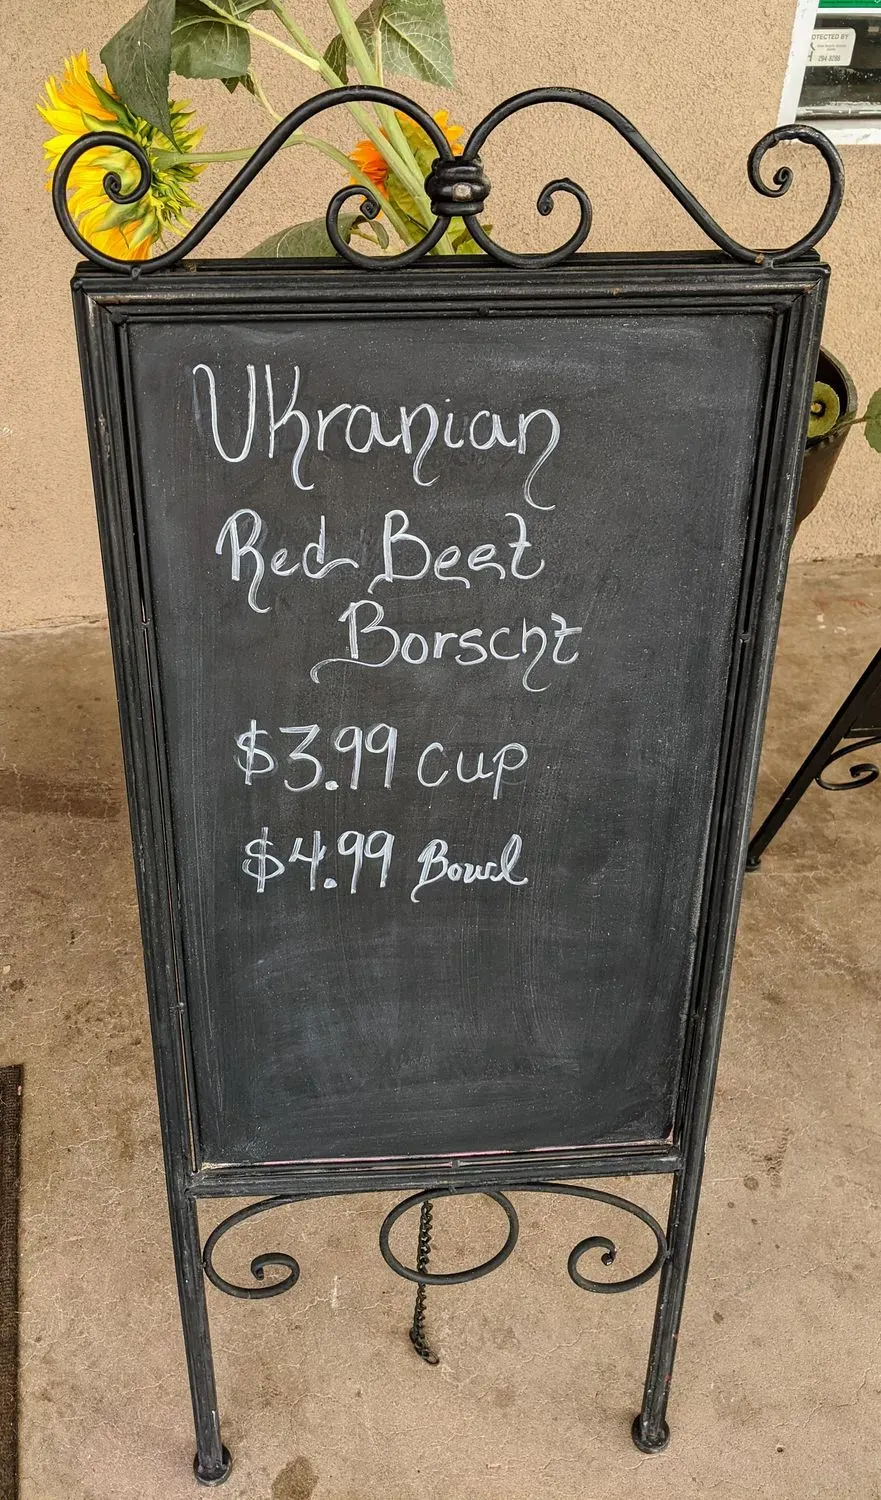 Ukranian
Red Beet
Borscht
$3.99 cup
$4.99 Bowl
OTECTED BY
294-8286